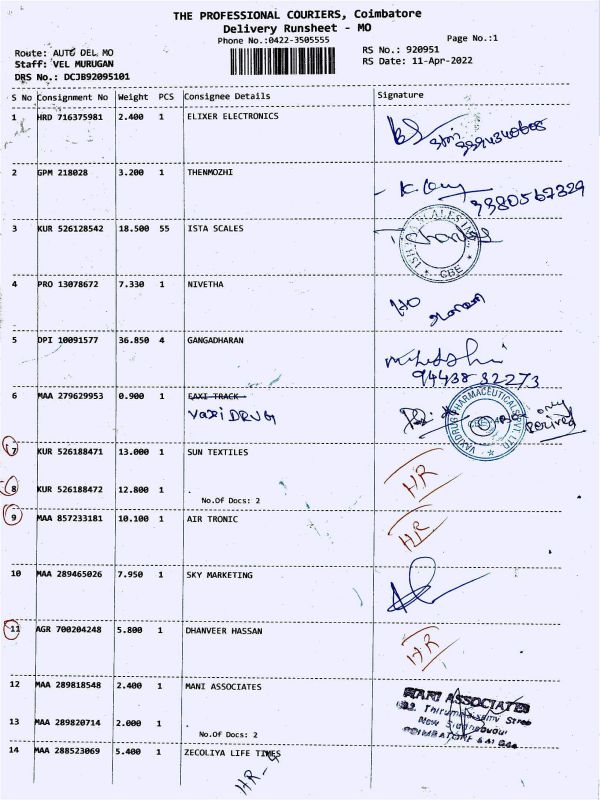 THE PROFESSIONAL COURIERS, Coimbatore
Delivery Runsheet - MO
Phone No.:0422-3505555
Page No.:1
Route: AUTO DEL MO
RS No.: 920951
Staff: VEL MURUGAN
RS Date: 11-Apr-2022
DRS No.: DCJB92095101
S No Consignment No Weight PCS Consignee Details Signature
1 HRD 716375981 2.400 1 ELIXER ELECTRONICS
2 GPM 218028 3.200 1 THENMOZHI
9380567329
3 KUR 526128542 18.500 55 ISTA SCALES
CBE
4 PRO 13078672 7.330 1 NIVETHA
5 DPI 10091577 36.850 4 GANGADHARAN
9443832273
6 MAA 279629953 0.900 1 EAXI TRACK
Vaxi DRUG
VAXIDRUG PHARMACEUTICALS PVT. LTD
only
7 KUR 526188471 13.000 1 SUN TEXTILES
HR
8 KUR 526188472 12.800 1 .
No.Of Docs: 2
9 MAA 857233181 10.100 1 AIR TRONIC
HR
10 MAA 289465026 7.950 1 SKY MARKETING
11 AGR 700204248 5.800 1 DHANVEER HASSAN
HR
12 MAA 289818548 2.400 1 MANI ASSOCIATES
MANI ASSOCIATES
13 MAA 289820714 2.000 1 .
No.Of Docs: 2
14 MAA 288523069 5.400 1 ZECOLIYA LIFE TIMES
HR